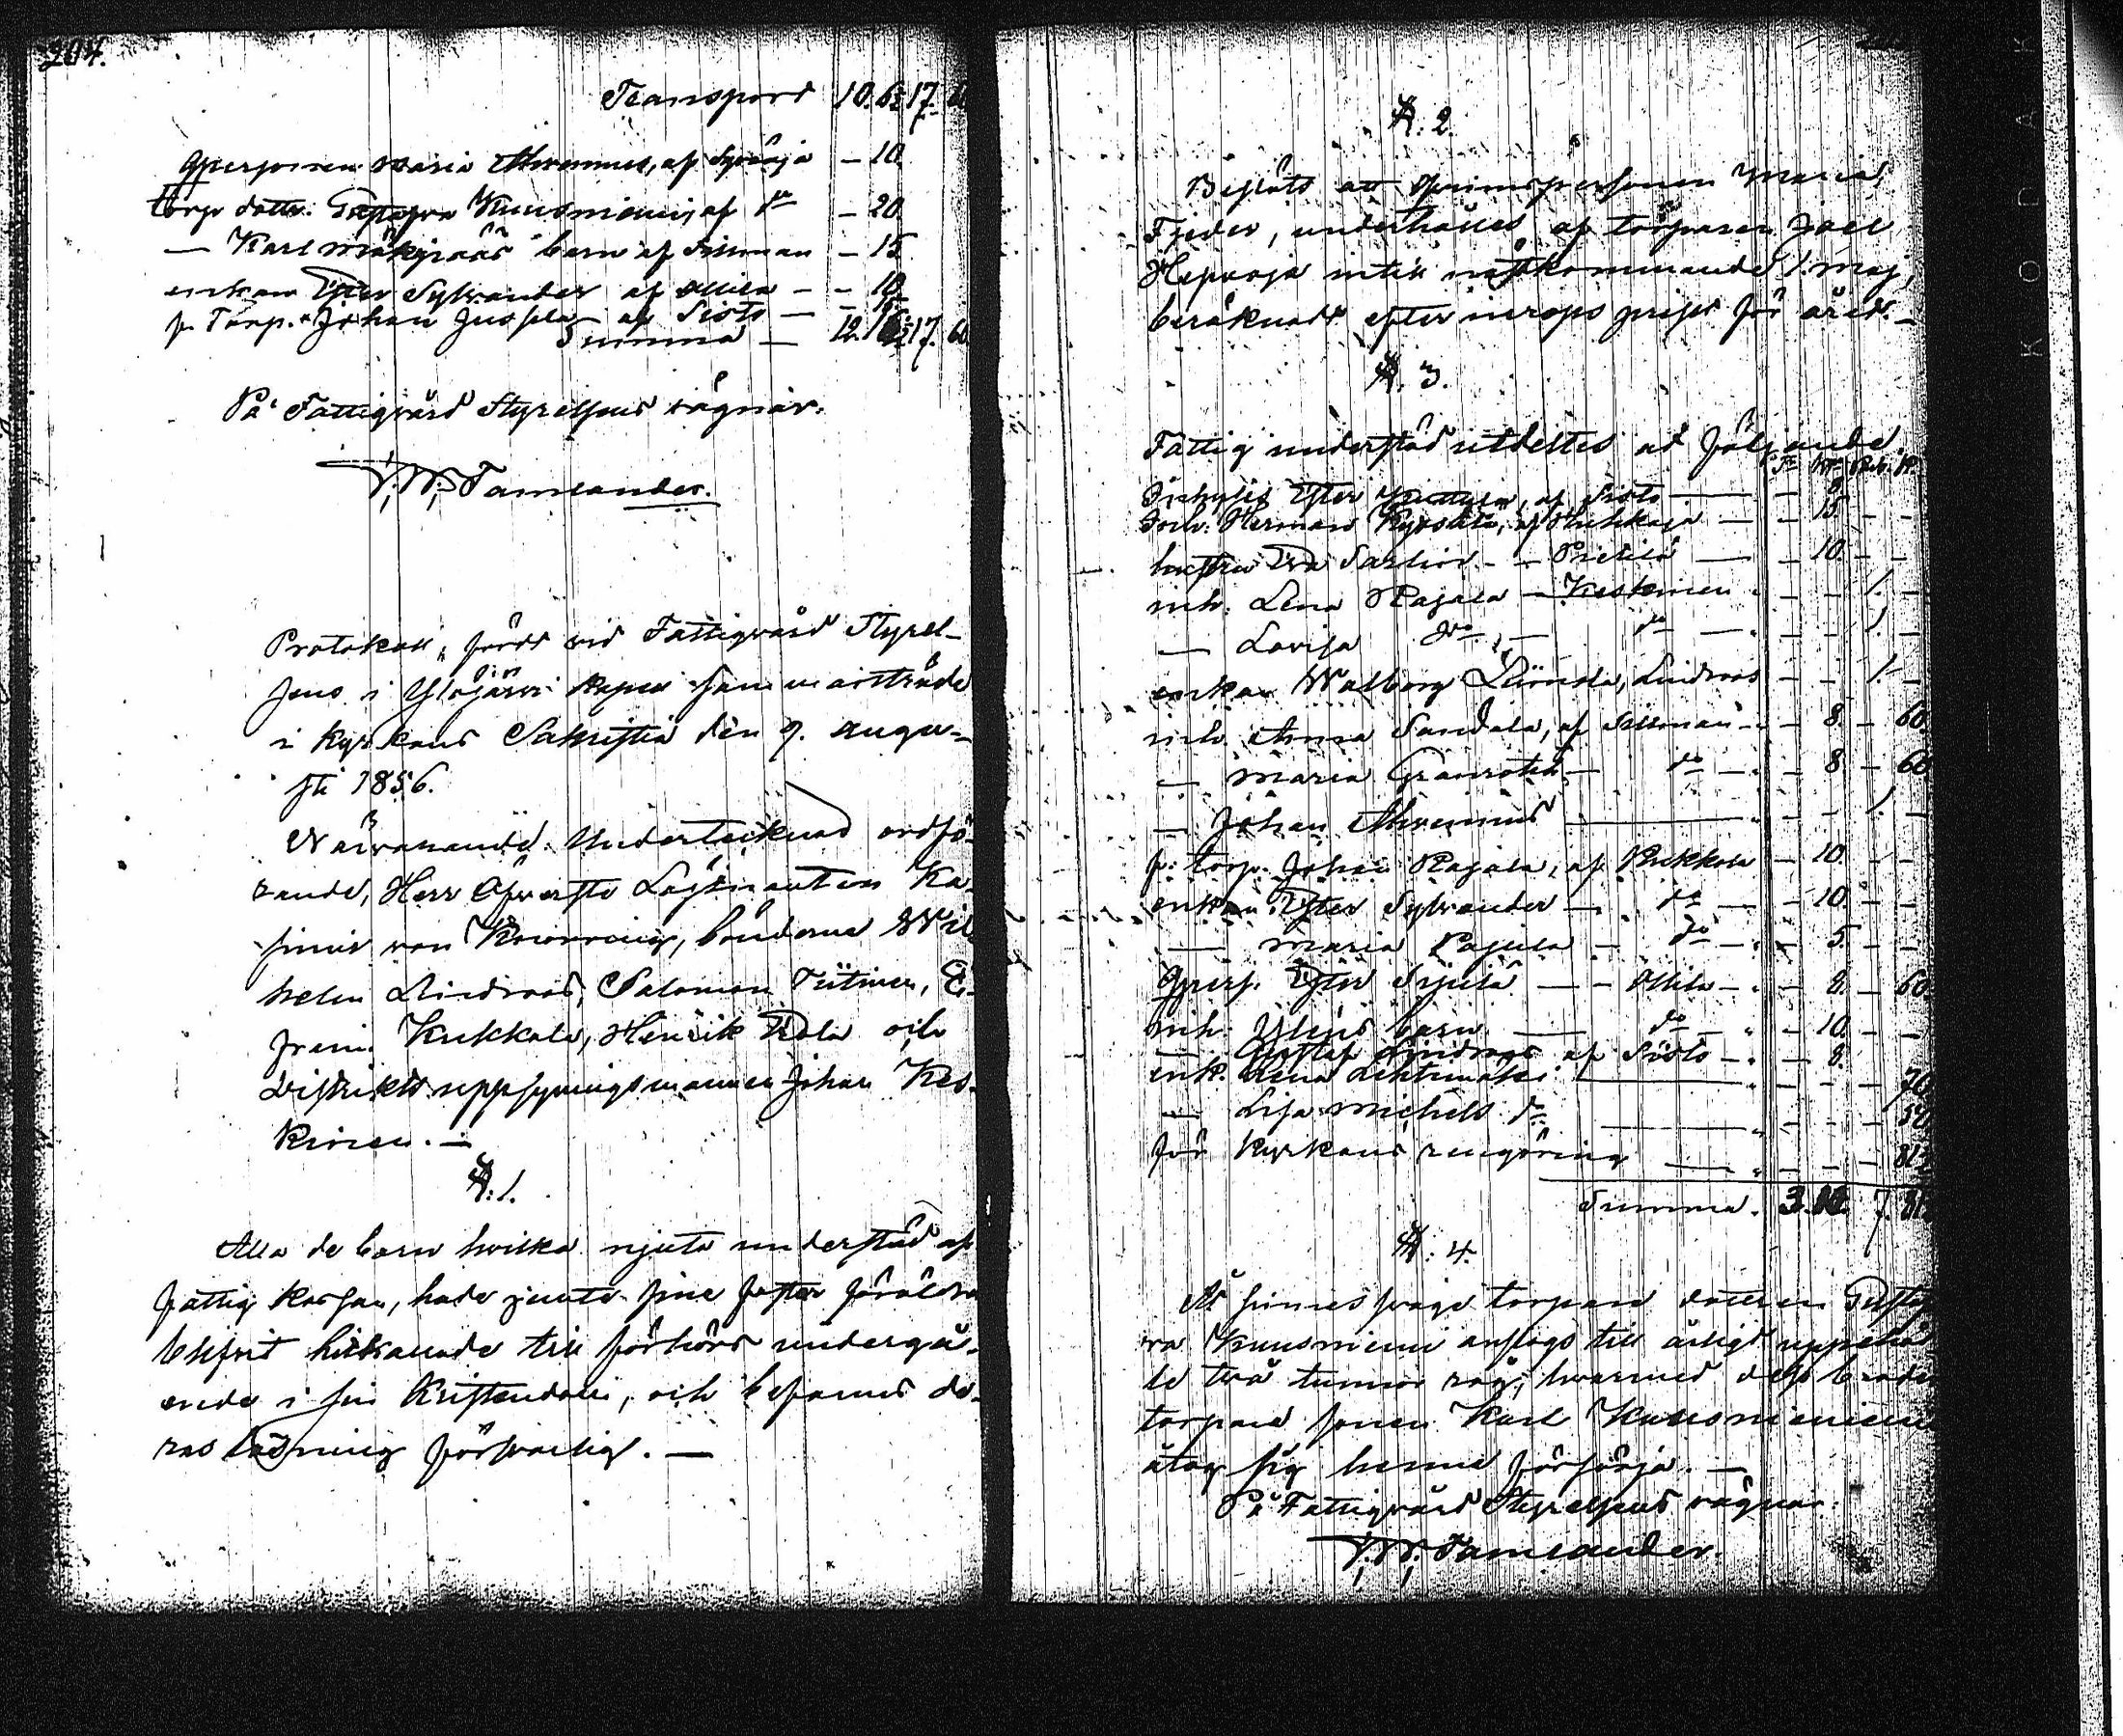 204.
Transport 10. 6½ 17. 60
Qpersonen Maria Ahvenus, af Sorvaja — 10
torp. dottr. Gustafva Kuusniemi, af do — 20
— Karl Mäkipääs barn af Sillman — 15
enkan Ester Sylvander af Ollila — — 10
f. Torp. Johan Jussila af Sisto —
Summa — 17. 60
På Fattigvård Styrelsens vägnar.
Tamlander.
Protokoll, fördt vid Fattigvård Styrel-
sens i Ylöjärvi Kapell sammanträde
i Kyrkans Sakristia den 9. Augu-
sti 1856.
Närvarande. Undertecknad ordfö-
rande, Herr Öfverste Löjtnanten Ka-
simir von Knorring, bönderne Wil-
helm Lindroos, Salomon Tiitinen, E-
fraim Kukkola, Henrik Uola och
Distrikts uppsyningsmannen Johan Kes-
kinen. —
§. 1.
Alla de barn hvilka njuta understöd af
fattig kassan, hade jemte sine foster föräldra
blifvit hitkallade till förhörs undergå-
ende i sin Kristendom, och befanns de-
ras läsning försvarlig. —
§. 2.
Beslöts att qvinnspersonen Maria
Fjeder, underhålles af torparen Joel
Hepooja intill nästkommande 1. Maj,
beräknadt efter inrops priset för året. —
§. 3.
Fattig understöd utdeltes åt följande
Inhyses Ester af Sisto — — 8
Soch. Herman Kyöstilä, af Huhkaja — — 15 — —
hustru Eva Sarlin — — Pierilä — — 10. — —
inh. Lena Rajala — Keskinen — — 1. —
— Lovisa do — do — — — 1. —
enkan Walborg Lindroos — — 1. —
inh. Anna Sandala, af Sillman — — 8. — 60.
— Maria Granroth — do — — 8 — 60
— Johan Ahvenus — — — 1. —
f: torp. Johan Rajala, af Kukkola — 10. — —
enkan Ester Sylvander — do — — 10. — —
— Maria Pajula — do — — 5. — —
Qpers. Ester — — Ollila — — 8. — 60.
inh. barn — do — — 10. — —
— Gustaf Lindroos af Sisto — — 8.
enk. Lena Lehtimäki — — — — 70
— Lisa Michels do — — — — 50
för Kyrkans rengöring — — — — 81½
Summa. 7. 81½
§. 4.
Åt sinnessvage torpare dottren Gustaf-
va Kuusniemi anslogs till årligt uppehäl-
le två tunnor råg, hvarmed dess broder
torpare sonen Karl Kuusniemi
åtog sig henne försörja. —
På Fattigvård Styrelsens vägnar.
Tamlander.
KODAK